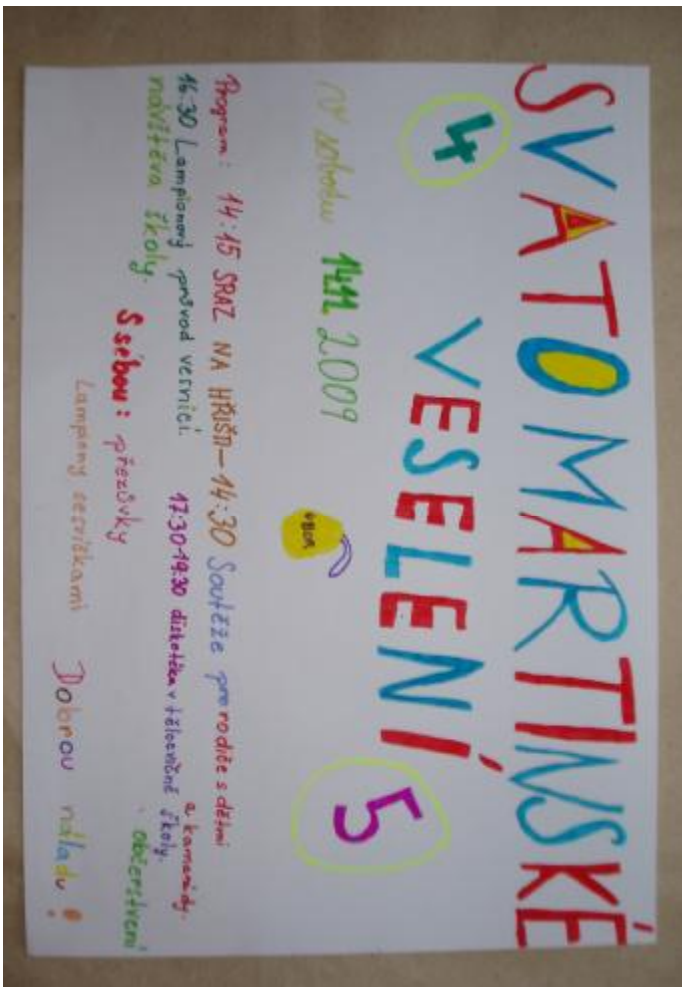 SVATOMARTINSKÉ
4 VESELENÍ 5
V sobotu 14.11. 2009
Program: 14:15 SRAZ NA HŘIŠTI - 14:30 Soutěže pro rodiče s dětmi
a kamarády.
16:30 Lampionový průvod vesnicí. 17:30-19:30 diskotéka v tělocvičně školy.
návštěva školy. občerstvení
S sebou: přezůvky
Lampiony sesvíčkami Dobrou náladu!